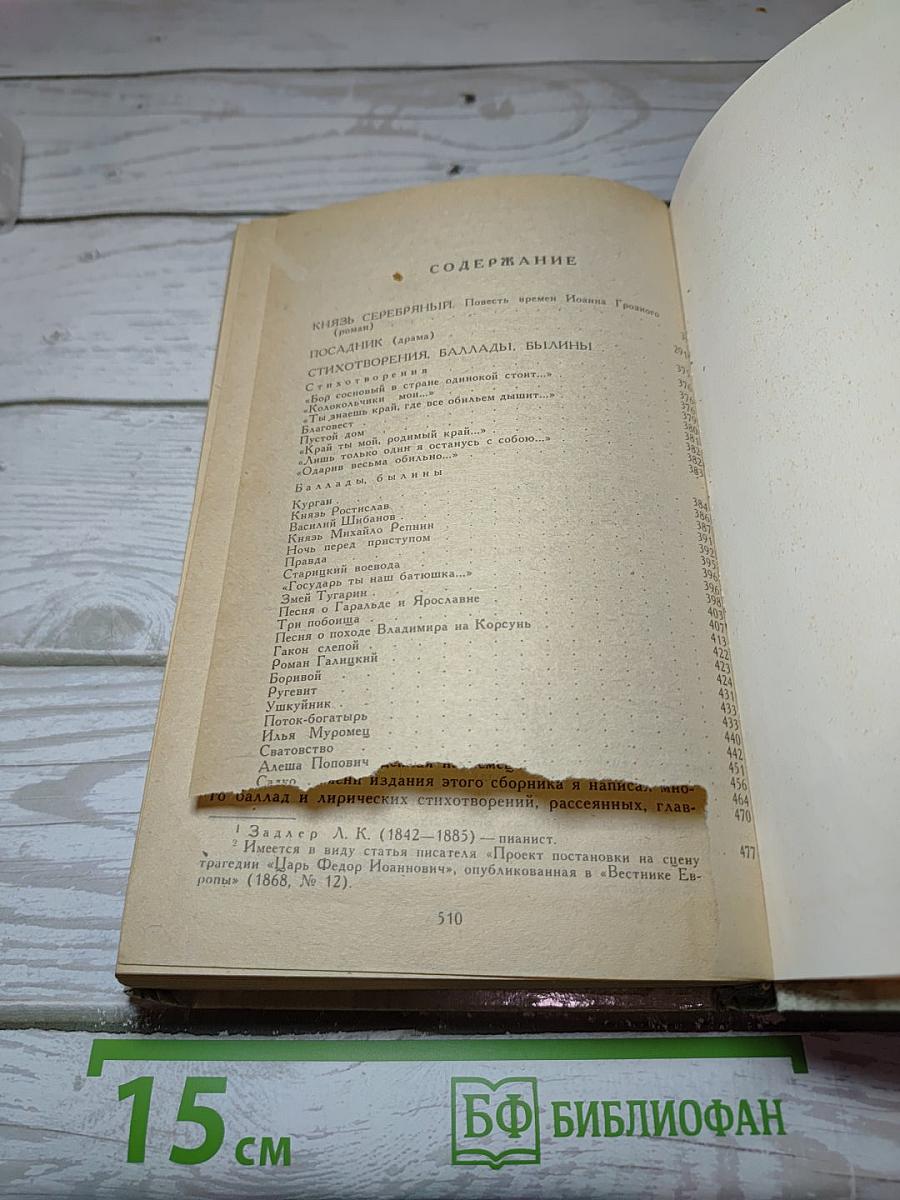 СОДЕРЖАНИЕ
КНЯЗЬ СЕРЕБРЯНЫЙ. Повесть времен Иоанна Грозного
(роман)
ПОСАДНИК (драма) 291
СТИХОТВОРЕНИЯ, БАЛЛАДЫ, БЫЛИНЫ
Стихотворения
«Бор сосновый в стране одинокой стоит...»
«Колокольчики мои...»
«Ты знаешь край, где все обильем дышит...»
Благовест
Пустой дом
«Край ты мой, родимый край...»
«Лишь только один я останусь с собою...»
«Одарив весьма обильно...» 383
Баллады, былины
Курган 384
Князь Ростислав 386
Василий Шибанов 387
Князь Михайло Репнин 391
Ночь перед приступом 392
Правда 395
Старицкий воевода 396
«Государь ты наш батюшка...» 396
Змей Тугарин 398
Песня о Гаральде и Ярославне 403
Три побоища 407
Песня о походе Владимира на Корсунь 413
Гакон слепой 422
Роман Галицкий 423
Боривой 424
Ругевит 431
Ушкуйник 433
Поток-богатырь 433
Илья Муромец 440
Сватовство 442
Алеша Попович 451
Садко 456
издания этого сборника я написал мно-
го баллад и лирических стихотворений, рассеянных, глав- 464
470
1 Задлер Л. К. (1842—1885) — пианист.
2 Имеется в виду статья писателя «Проект постановки на сцену 477
трагедии «Царь Федор Иоаннович», опубликованная в «Вестнике Ев-
ропы» (1868, № 12).
510
15 см
БФ БИБЛИОФАН